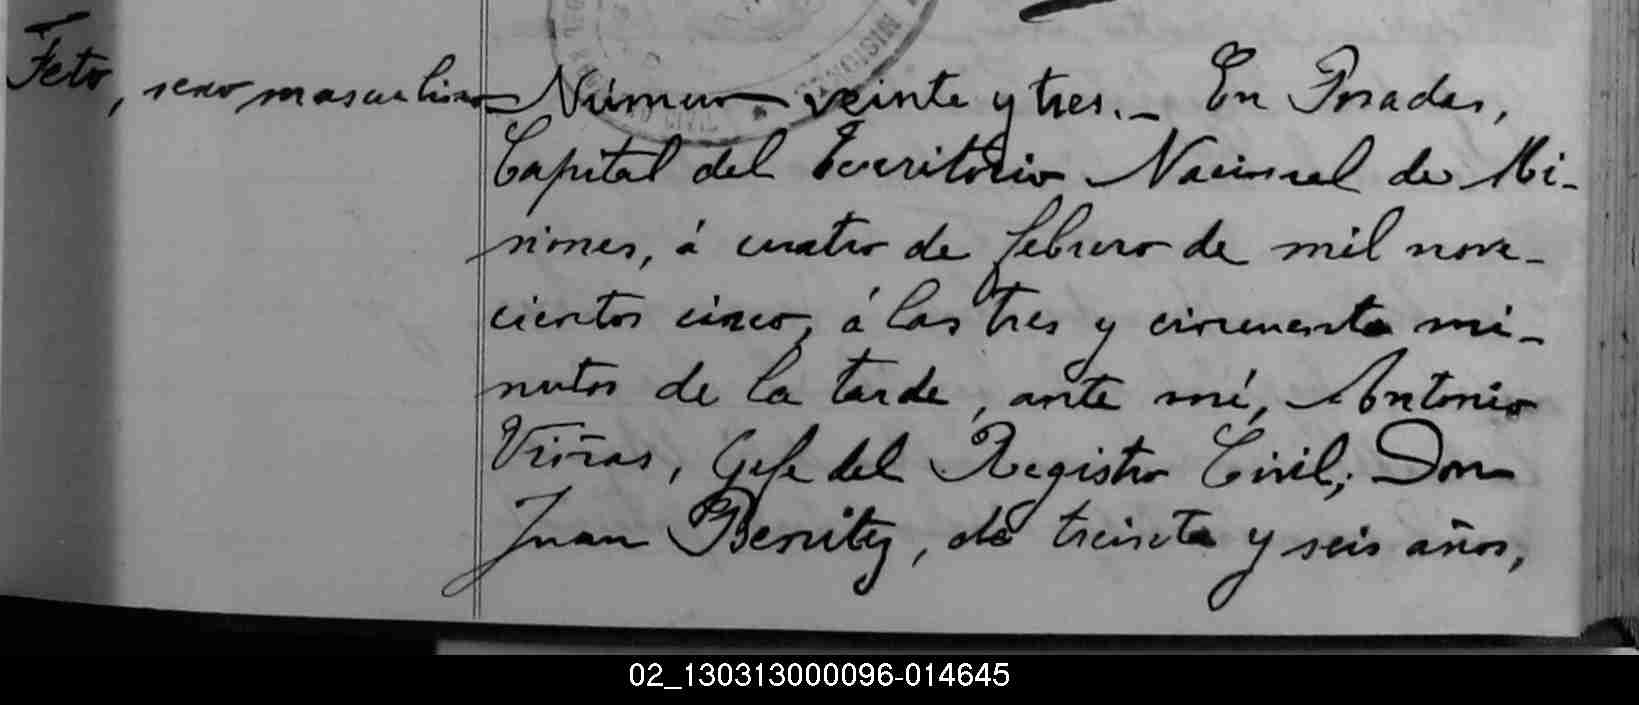 MISIONES
REGISTRO CIVIL
Feto, sexo masculino
Número veinte y tres.- En Posadas,
Capital del Territorio Nacional de Mi-
siones, á cuatro de febrero de mil nove-
cientos cinco, á las tres y cincuenta mi-
nutos de la tarde, ante mí, Antonio
Viñas, Gefe del Registro Civil; Don
Juan Benitez, de treinta y seis años,
02_130313000096-014645